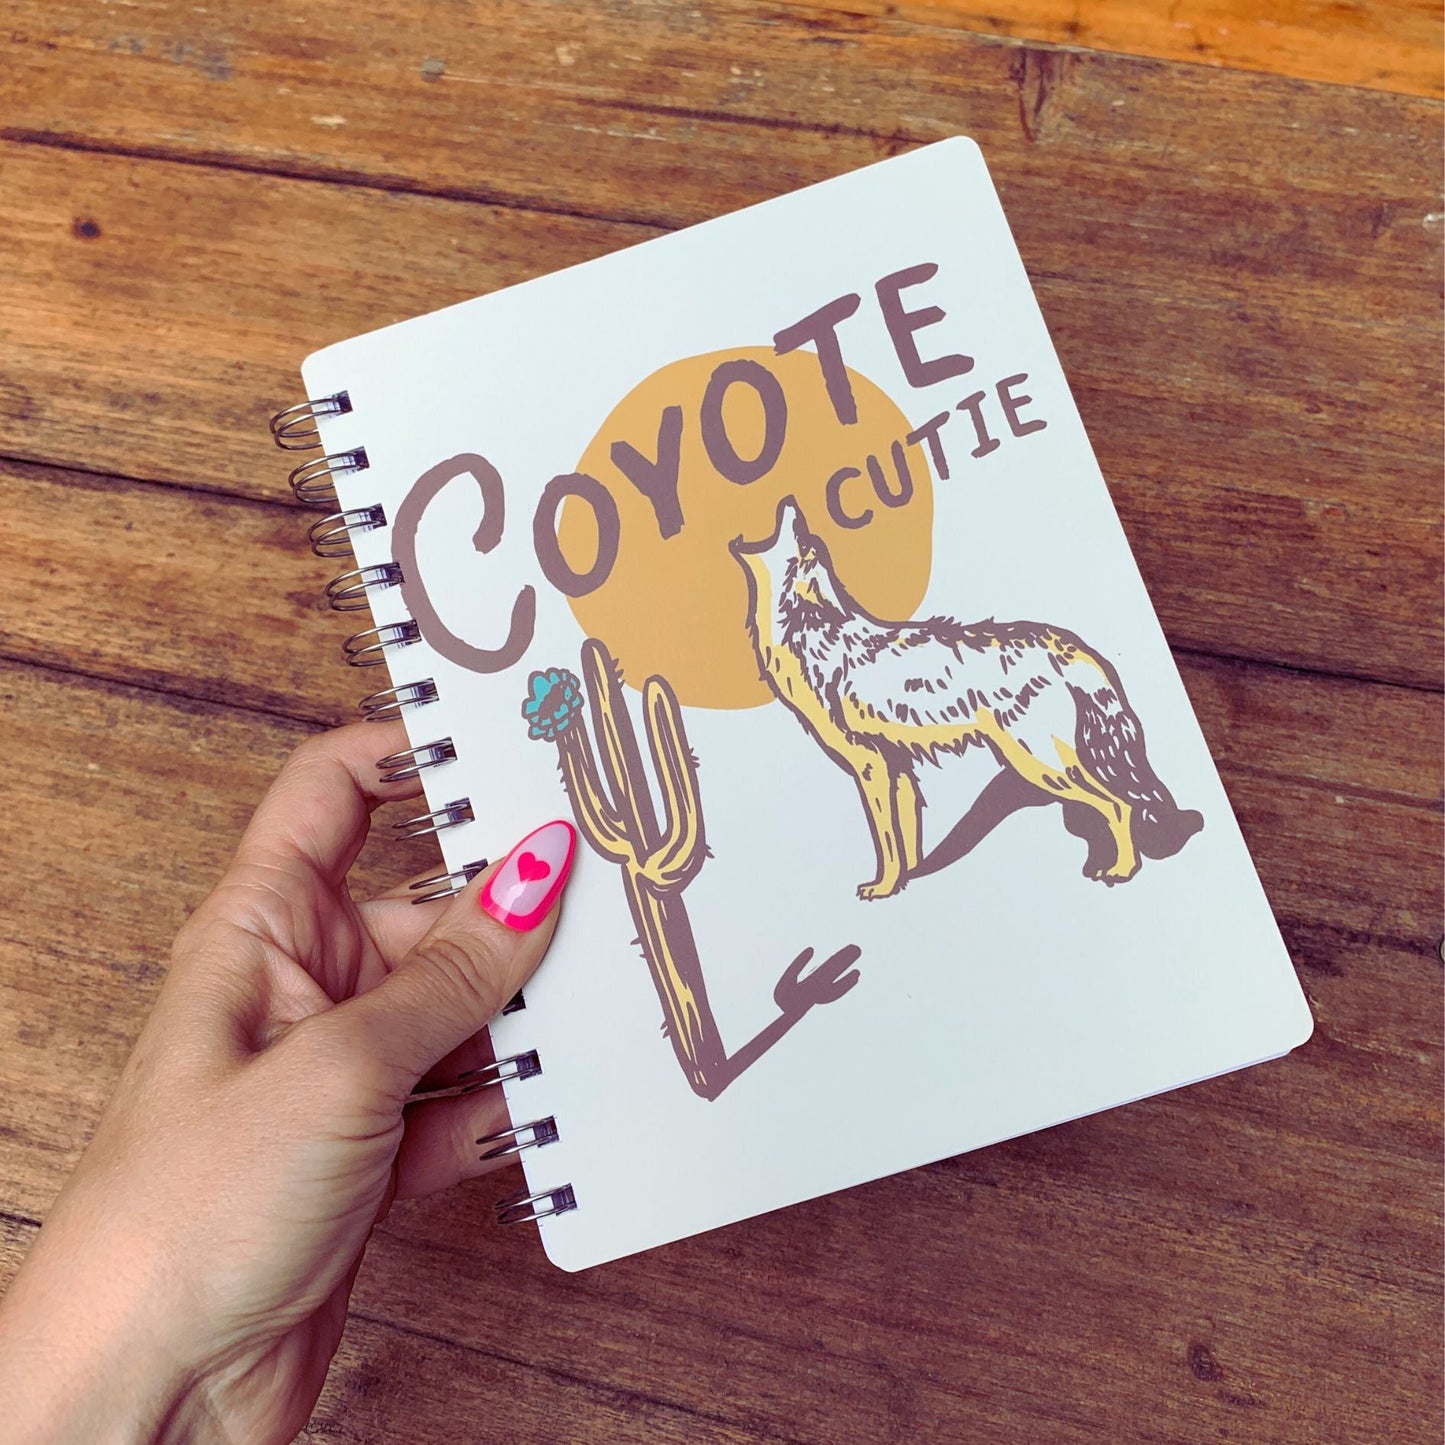 COYOTE
CUTIE